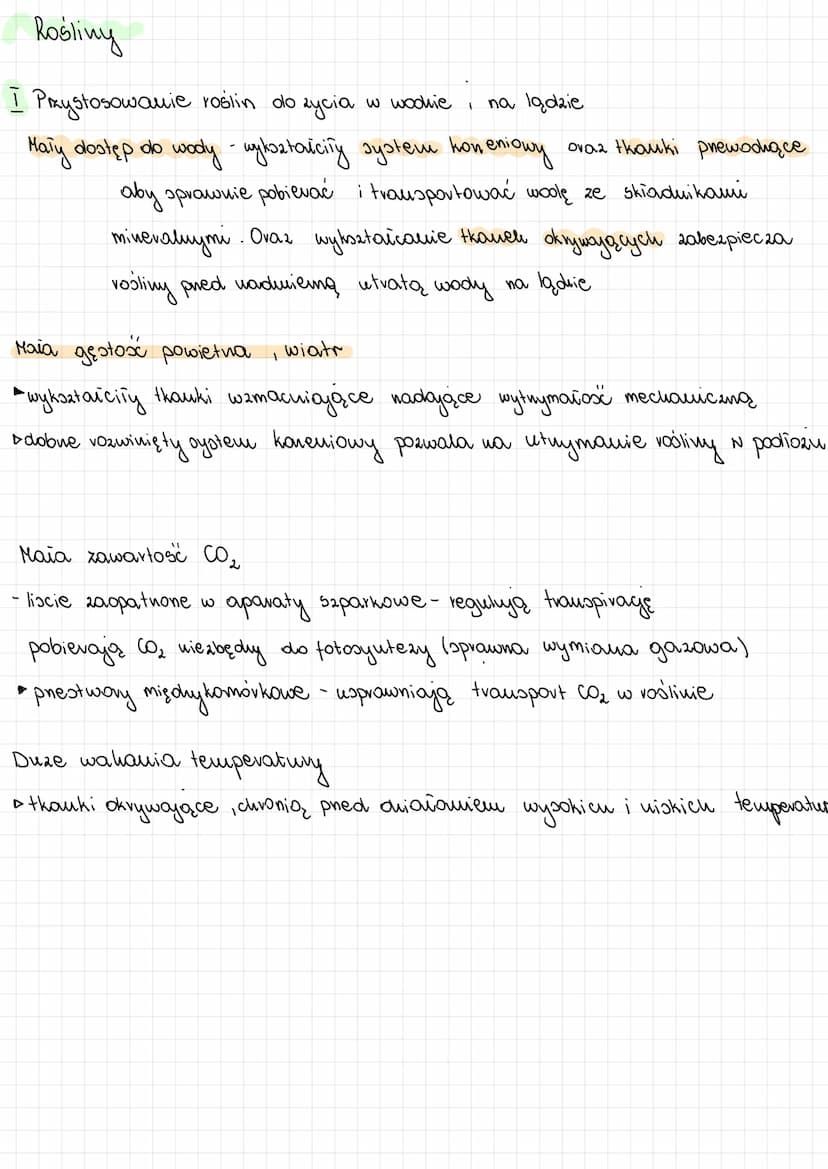 Rośliny
I Przystosowanie roślin do życia w wodzie i na lądzie
Mały dostęp do wody - wykształciły system korzeniowy oraz tkanki przewodzące
aby sprawnie pobierać i transportować wodę ze składnikami
mineralnymi. Oraz wykształcanie tkanek okrywających zabezpiecza
rośliny przed nadmierną utratą wody na lądzie
Mała gęstość powietrza, wiatr
▸ wykształciły tkanki wzmacniające nadające wytrzymałość mechaniczną
▹ dobrze rozwinięty system korzeniowy pozwala na utrzymanie rośliny w podłożu
Mała zawartość CO₂
- liście zaopatrzone w aparaty szparkowe - regulują transpirację
pobierają CO₂ niezbędny do fotosyntezy (sprawna wymiana gazowa)
▸ przestwory międzykomórkowe - usprawniają transport CO₂ w roślinie
Duże wahania temperatury
▹ tkanki okrywające, chronią przed działaniem wysokich i niskich temperatur